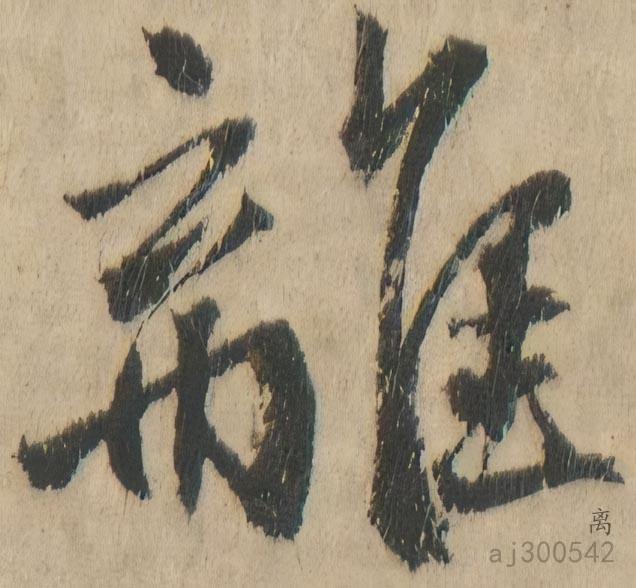 離
离
aj300542